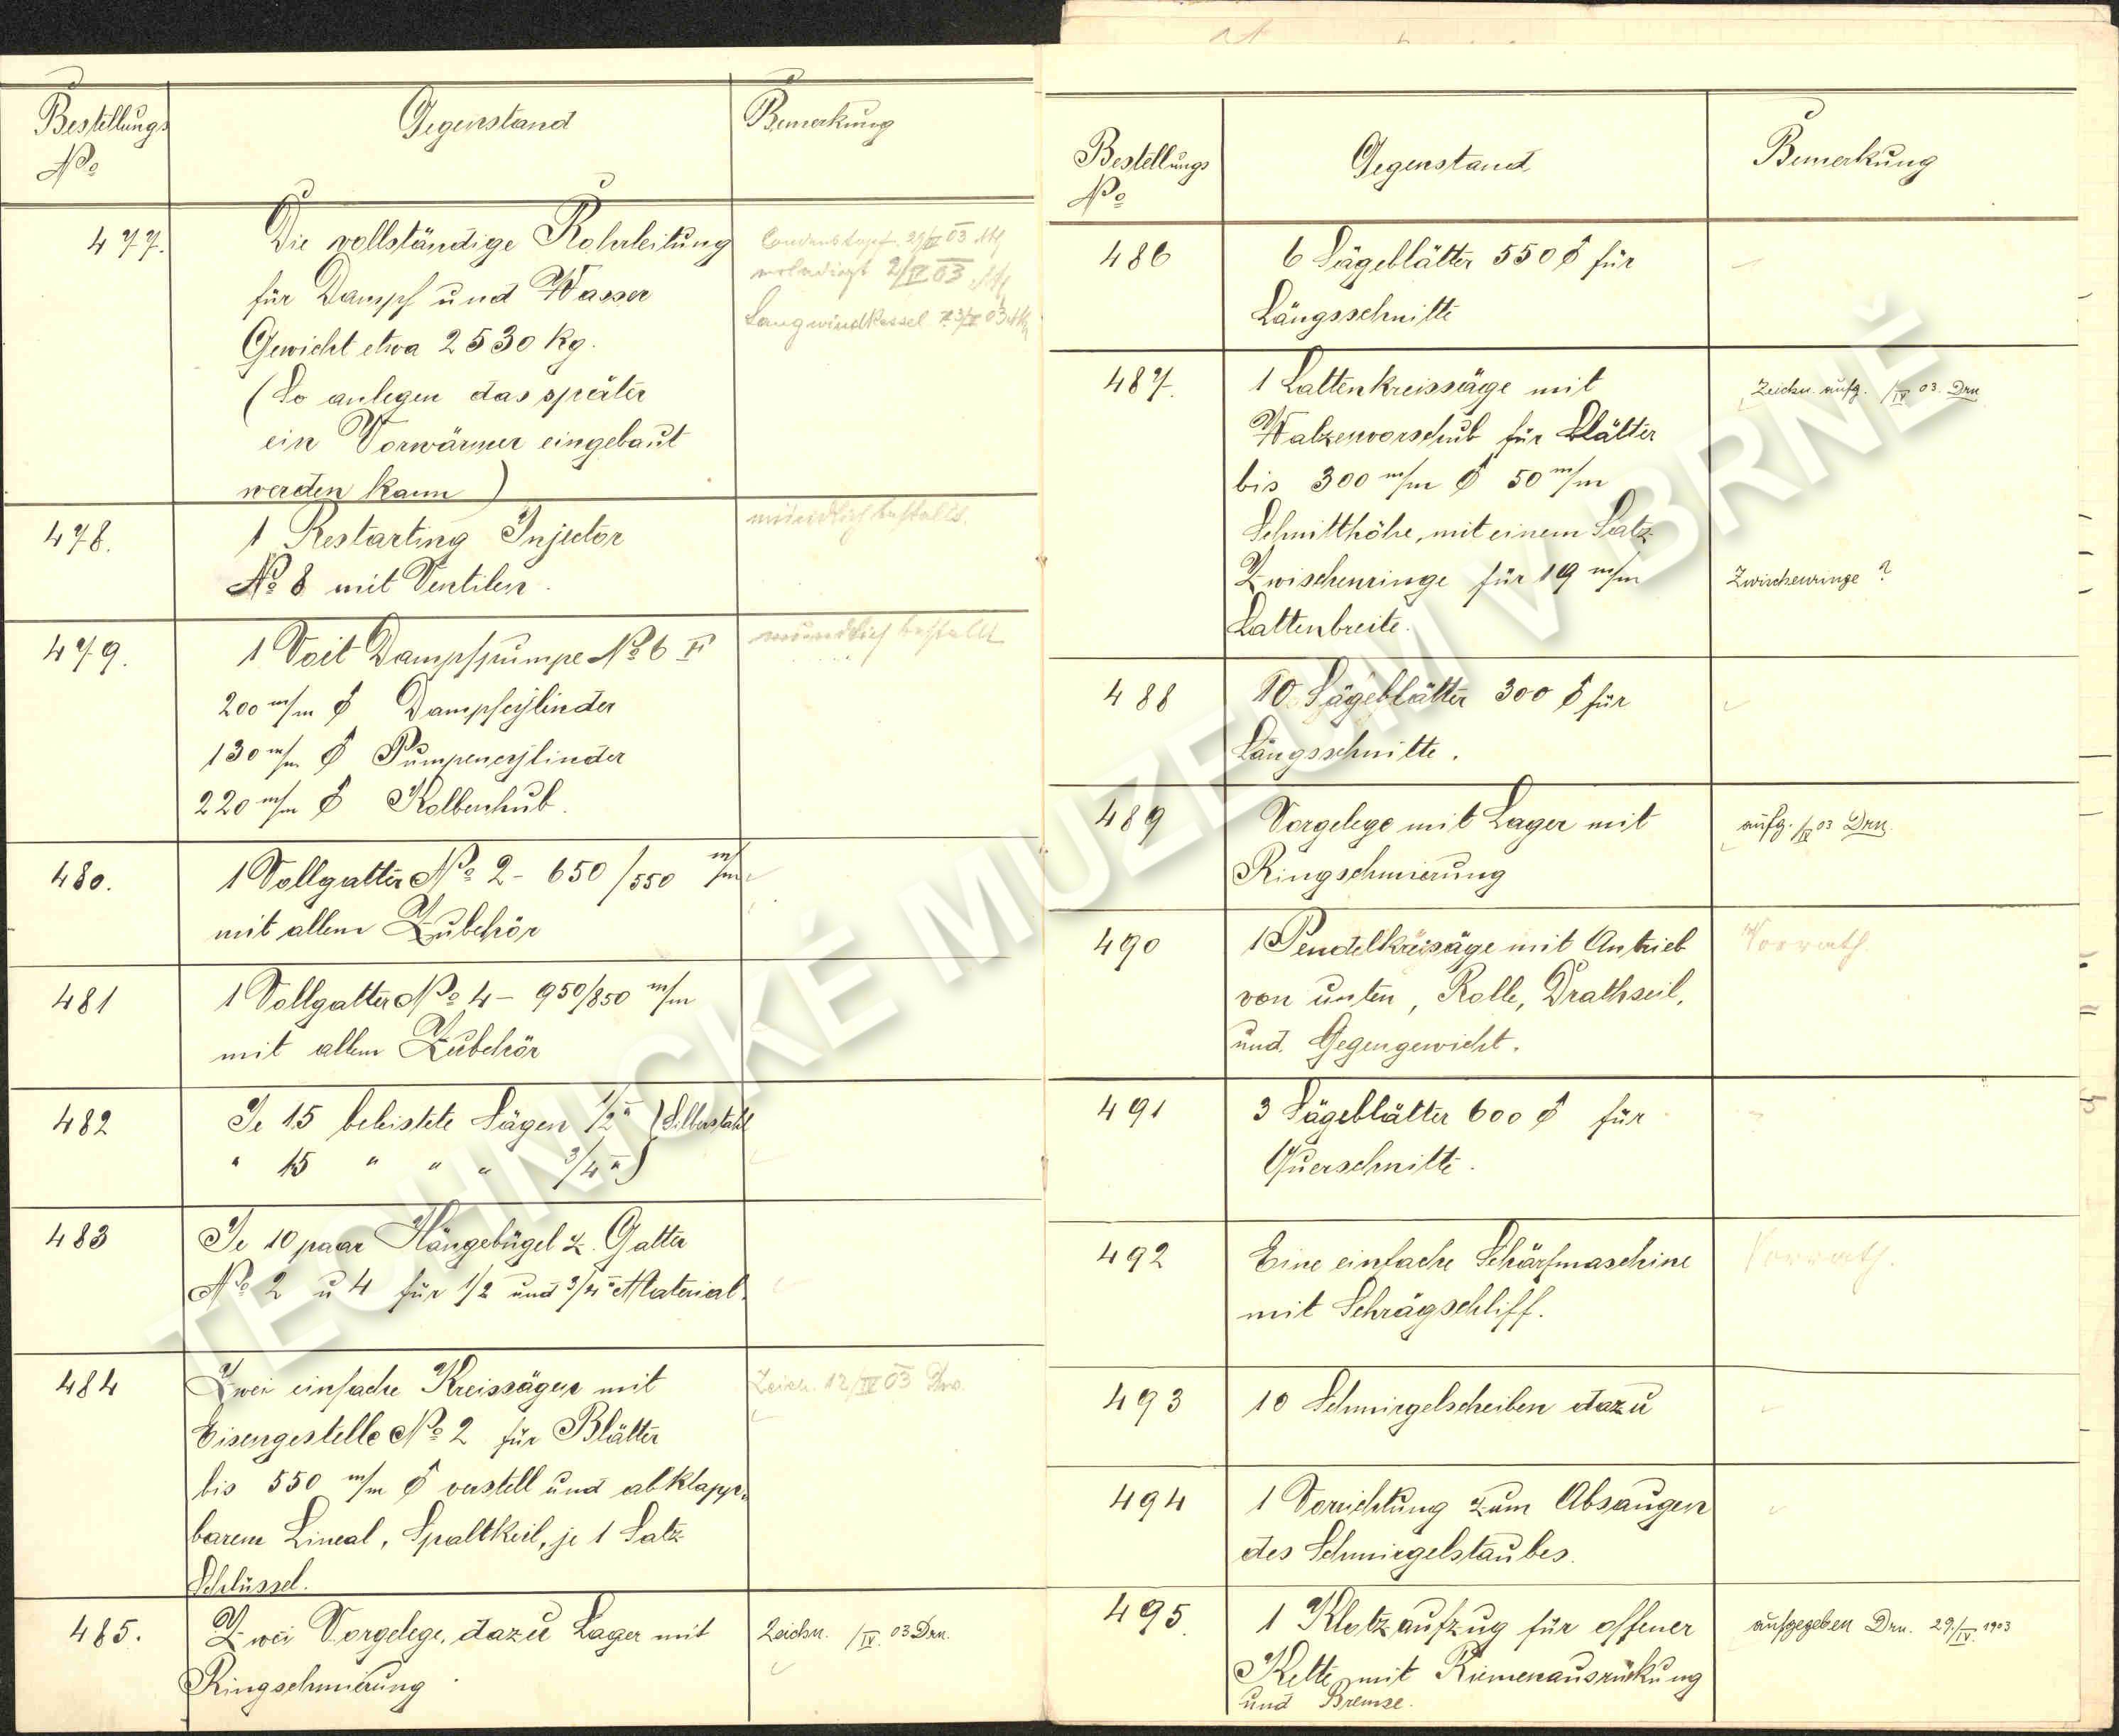 Bestellungs
No
Gegenstand
Bemerkung
477.
Die vollständige Rohrleitung
für Dampf und Wasser
Gewicht etwa 2530 Kg.
(So anlegen das später
ein Vorwärmer eingebaut
werden kann)
2/IV 03
478.
1 Restarting Injector
No 8 mit Ventilen.
mündlich bestellt.
479.
1 Voit Dampfpumpe No 6
200 m/m ∅ Dampfcylinder
130 m/m ∅ Pumpencylinder
220 m/m ∅ Kolbenhub.
mündlich bestellt
480.
1 Vollgatter No 2 - 650/550 m/m
mit allem Zubehör
481
1 Vollgatter No 4 - 950/850 m/m
mit allem Zubehör
482
Je 15 beleistete Sägen 1/2" (Silberstahl
" 15 " " " 3/4")
483
Je 10 paar Hängebügel z. Gatter
No 2 u 4 für 1/2 und 3/4" Material.
484
Zwei einfache Kreissägen mit
Eisengestelle No 2 für Blätter
bis 550 m/m ∅ verstell und abklapp-
barem Lineal, Spaltkeil, je 1 Satz
Schlüssel.
Zeich. 12/IV 03 Drn.
485.
Zwei Vorgelege, dazu Lager mit
Ringschmierung.
Zeichn. /IV. 03 Drn.
Bestellungs
No
Gegenstand
Bemerkung
486
6 Sägeblätter 550 ∅ für
Längsschnitte
487.
1 Lattenkreissäge mit
Walzenvorschub für Blätter
bis 300 m/m ∅ 50 m/m
Schnitthöhe, mit einem Satz
Zwischenringe für 19 m/m
Lattenbreite.
Zeichn. aufg. /IV 03. Drn
Zwischenringe ?
488
10 Sägeblätter 300 ∅ für
Längsschnitte.
489
Vorgelege mit Lager mit
Ringschmierung
aufg. /IV 03 Drn.
490
1 Pendelkreisäge mit Antrieb
von unten, Rolle, Drathseil,
und Gegengewicht.
Vorrath.
491
3 Sägeblätter 600 ∅ für
Querschnitte.
492
Eine einfache Schärfmaschine
mit Schrägschliff.
Vorrath.
493
10 Schmirgelscheiben dazu
494
1 Vorrichtung zum Absaugen
des Schmirgelstaubes.
495.
1 Klotzaufzug für offener
Kette mit Riemenausrückung
und Bremse.
aufgegeben Drn. 29./IV. 1903
TECHNICKÉ MUZEUM V BRNĚ